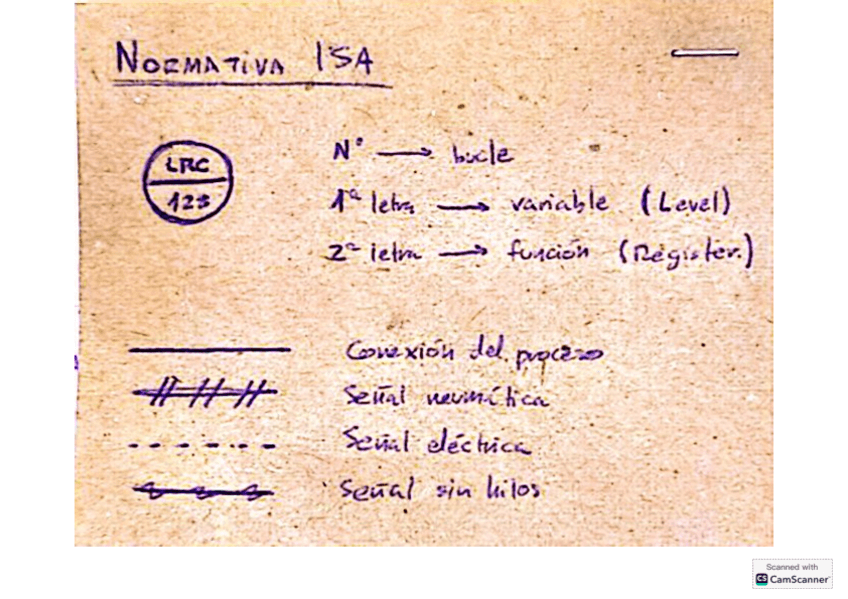 NORMATIVA ISA
LRC
123
Nº → bucle
1ª letra → variable (Level)
2ª letra → función (Register.)
Conexión del proceso
Señal neumática
Señal eléctrica
Señal sin hilos
Scanned with
CS CamScanner